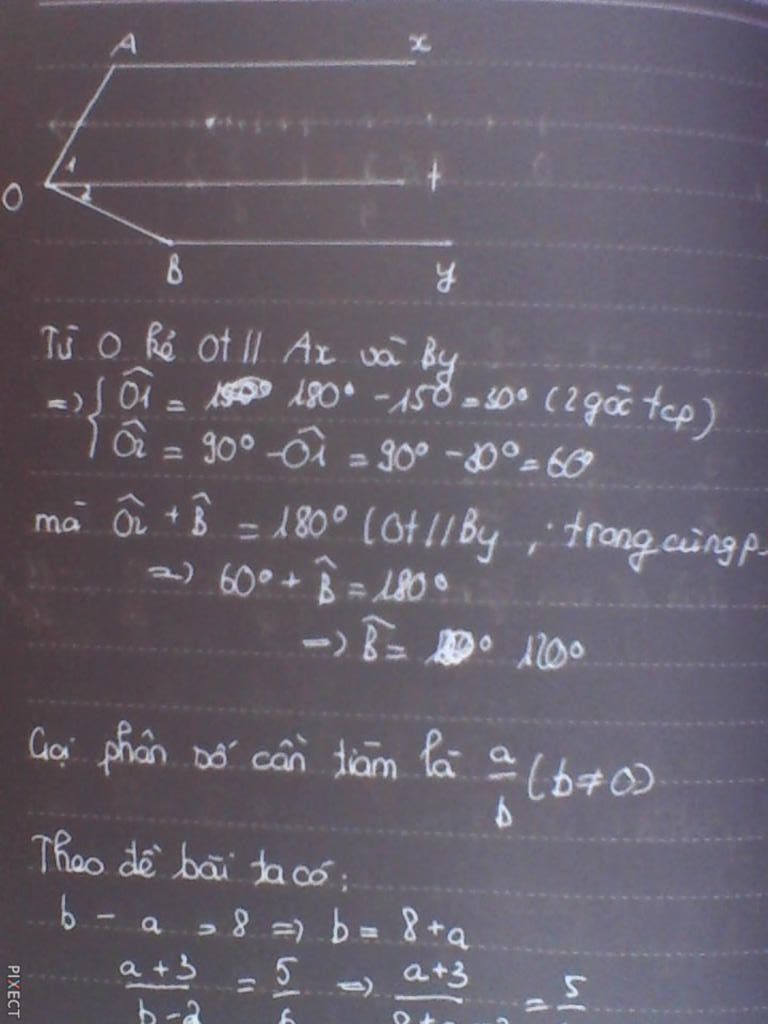 A x
1
O 2 t
B y
Từ O kẻ Ot // Ax và By
=> { Ô1 = 180° - 150 = 30° (2 góc tcp)
Ô2 = 90° - Ô1 = 90° - 30° = 60°
mà Ô2 + B̂ = 180° (Ot // By, trong cùng p.
=> 60° + B̂ = 180°
=> B̂ = 120°
Gọi phân số cần tìm là a/b (b ≠ 0)
Theo đề bài ta có:
b - a = 8 => b = 8 + a
a + 3 / b - 2 = 5 / 6 => a + 3 / 8 + = 5
PIXECT